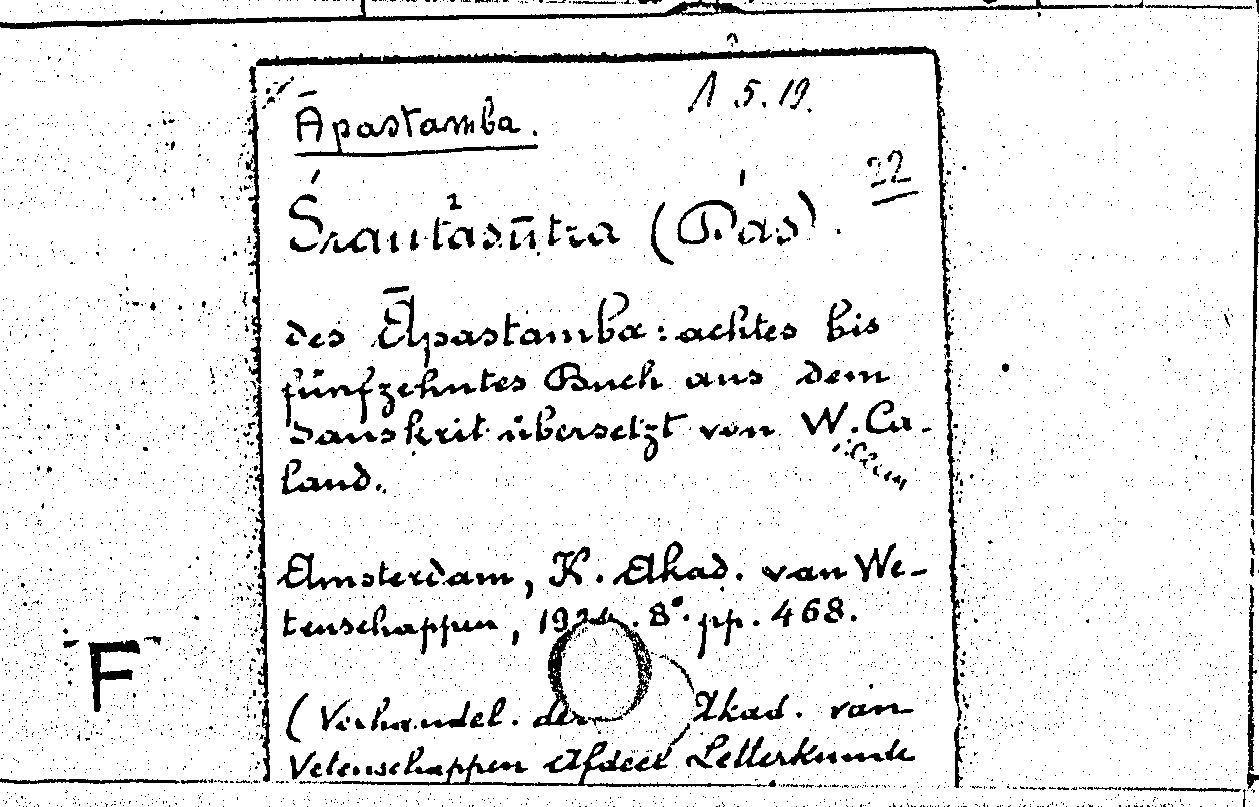 Āpastamba.
1 5.19.
22
Śrautasūtra (Das).
des Āpastamba: achtes bis
fünfzehntes Buch aus dem
Sanskrit übersetzt von W. Ca-
land.
Amsterdam, K. Akad. van We-
tenschappen, 1924. 8° pp. 468.
(Verhandel. der Akad. van
Wetenschappen Afdeel Letterkunde
F